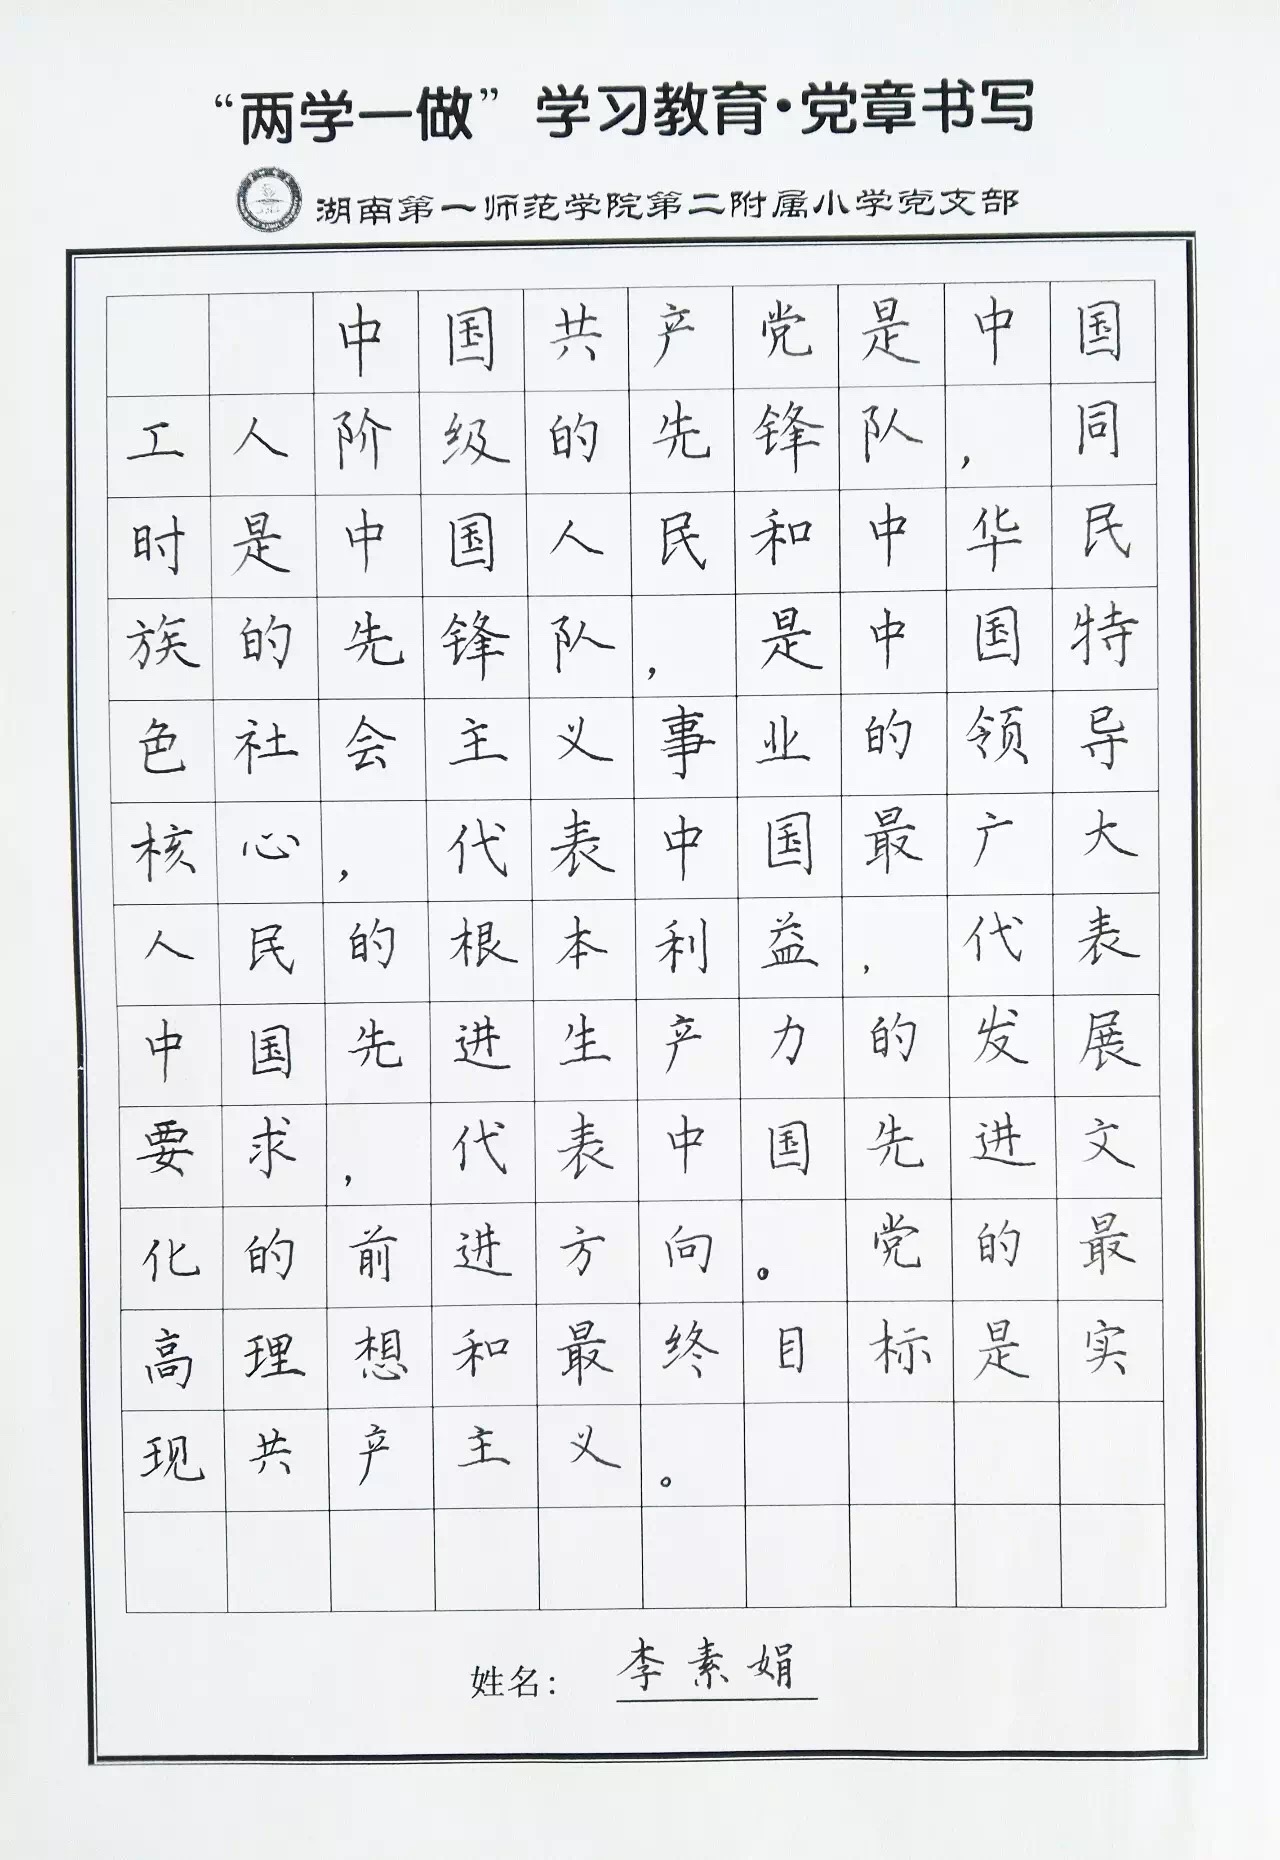 “两学一做”学习教育·党章书写
湖南第一师范学院第二附属小学党支部
中国共产党是中国
工人阶级的先锋队，同
时是中国人民和中华民
族的先锋队，是中国特
色社会主义事业的领导
核心，代表中国最广大
人民的根本利益，代表
中国先进生产力的发展
要求，代表中国先进文
化的前进方向。党的最
高理想和最终目标是实
现共产主义。
姓名：李素娟